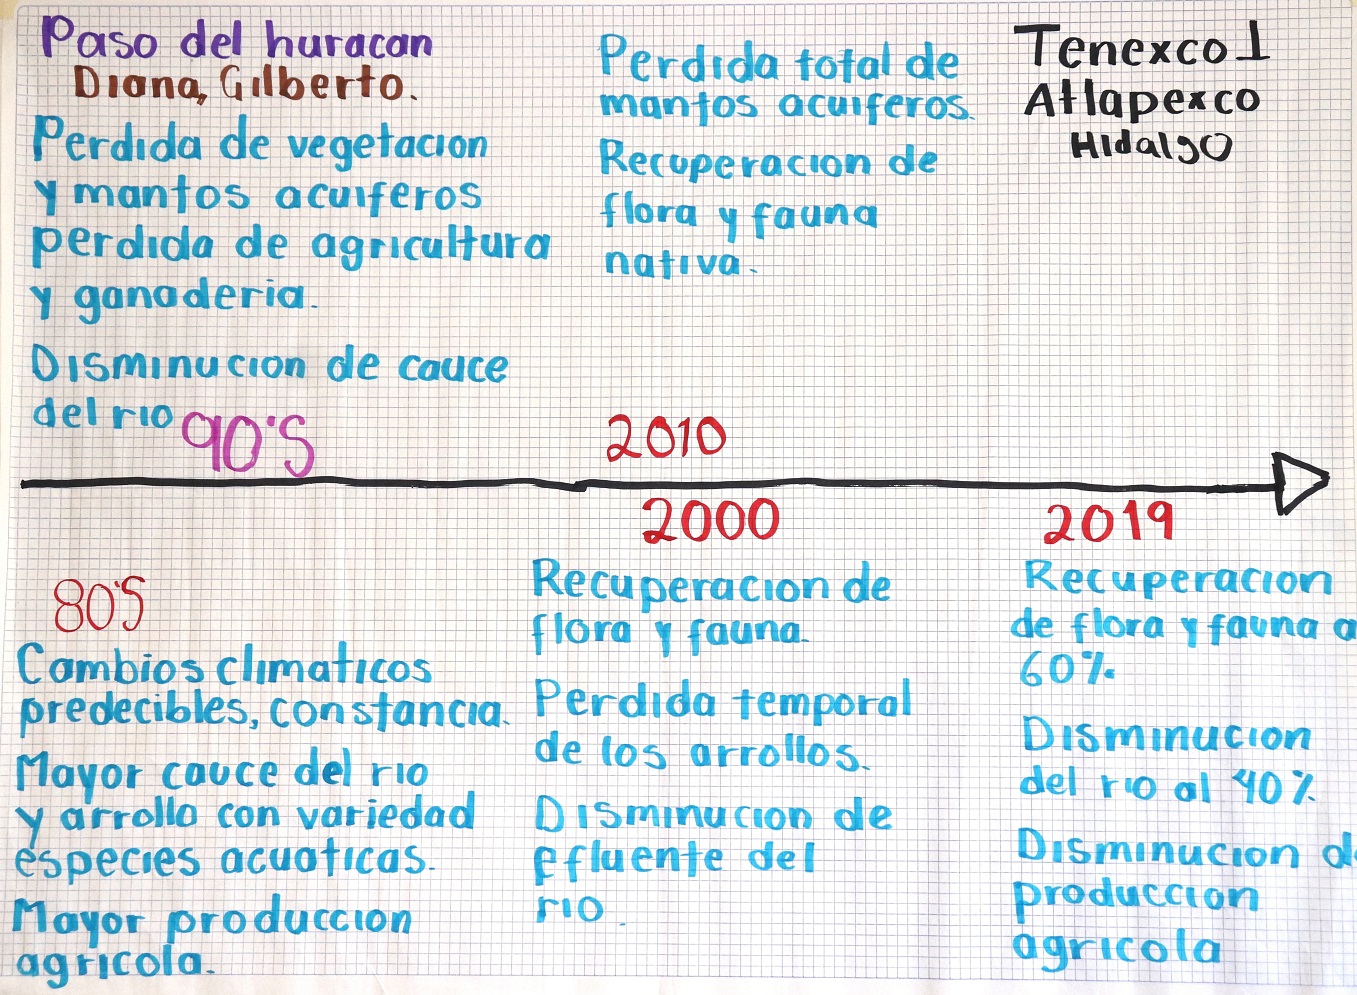 Paso del huracan
Diana, Gilberto.
Perdida de vegetacion
y mantos acuiferos
perdida de agricultura
y ganaderia.
Disminucion de cauce
del rio
90'S
Perdida total de
mantos acuiferos.
Recuperacion de
flora y fauna
nativa.
2010
Tenexco I
Atlapexco
Hidalgo
80'S
Cambios climaticos
predecibles, constancia.
Mayor cauce del rio
y arrollo con variedad
especies acuaticas.
Mayor produccion
agricola.
2000
Recuperacion de
flora y fauna.
Perdida temporal
de los arrollos.
Disminucion de
efluente del
rio.
2019
Recuperacion
de flora y fauna a
60%.
Disminucion
del rio al 40%.
Disminucion d
produccion
agricola